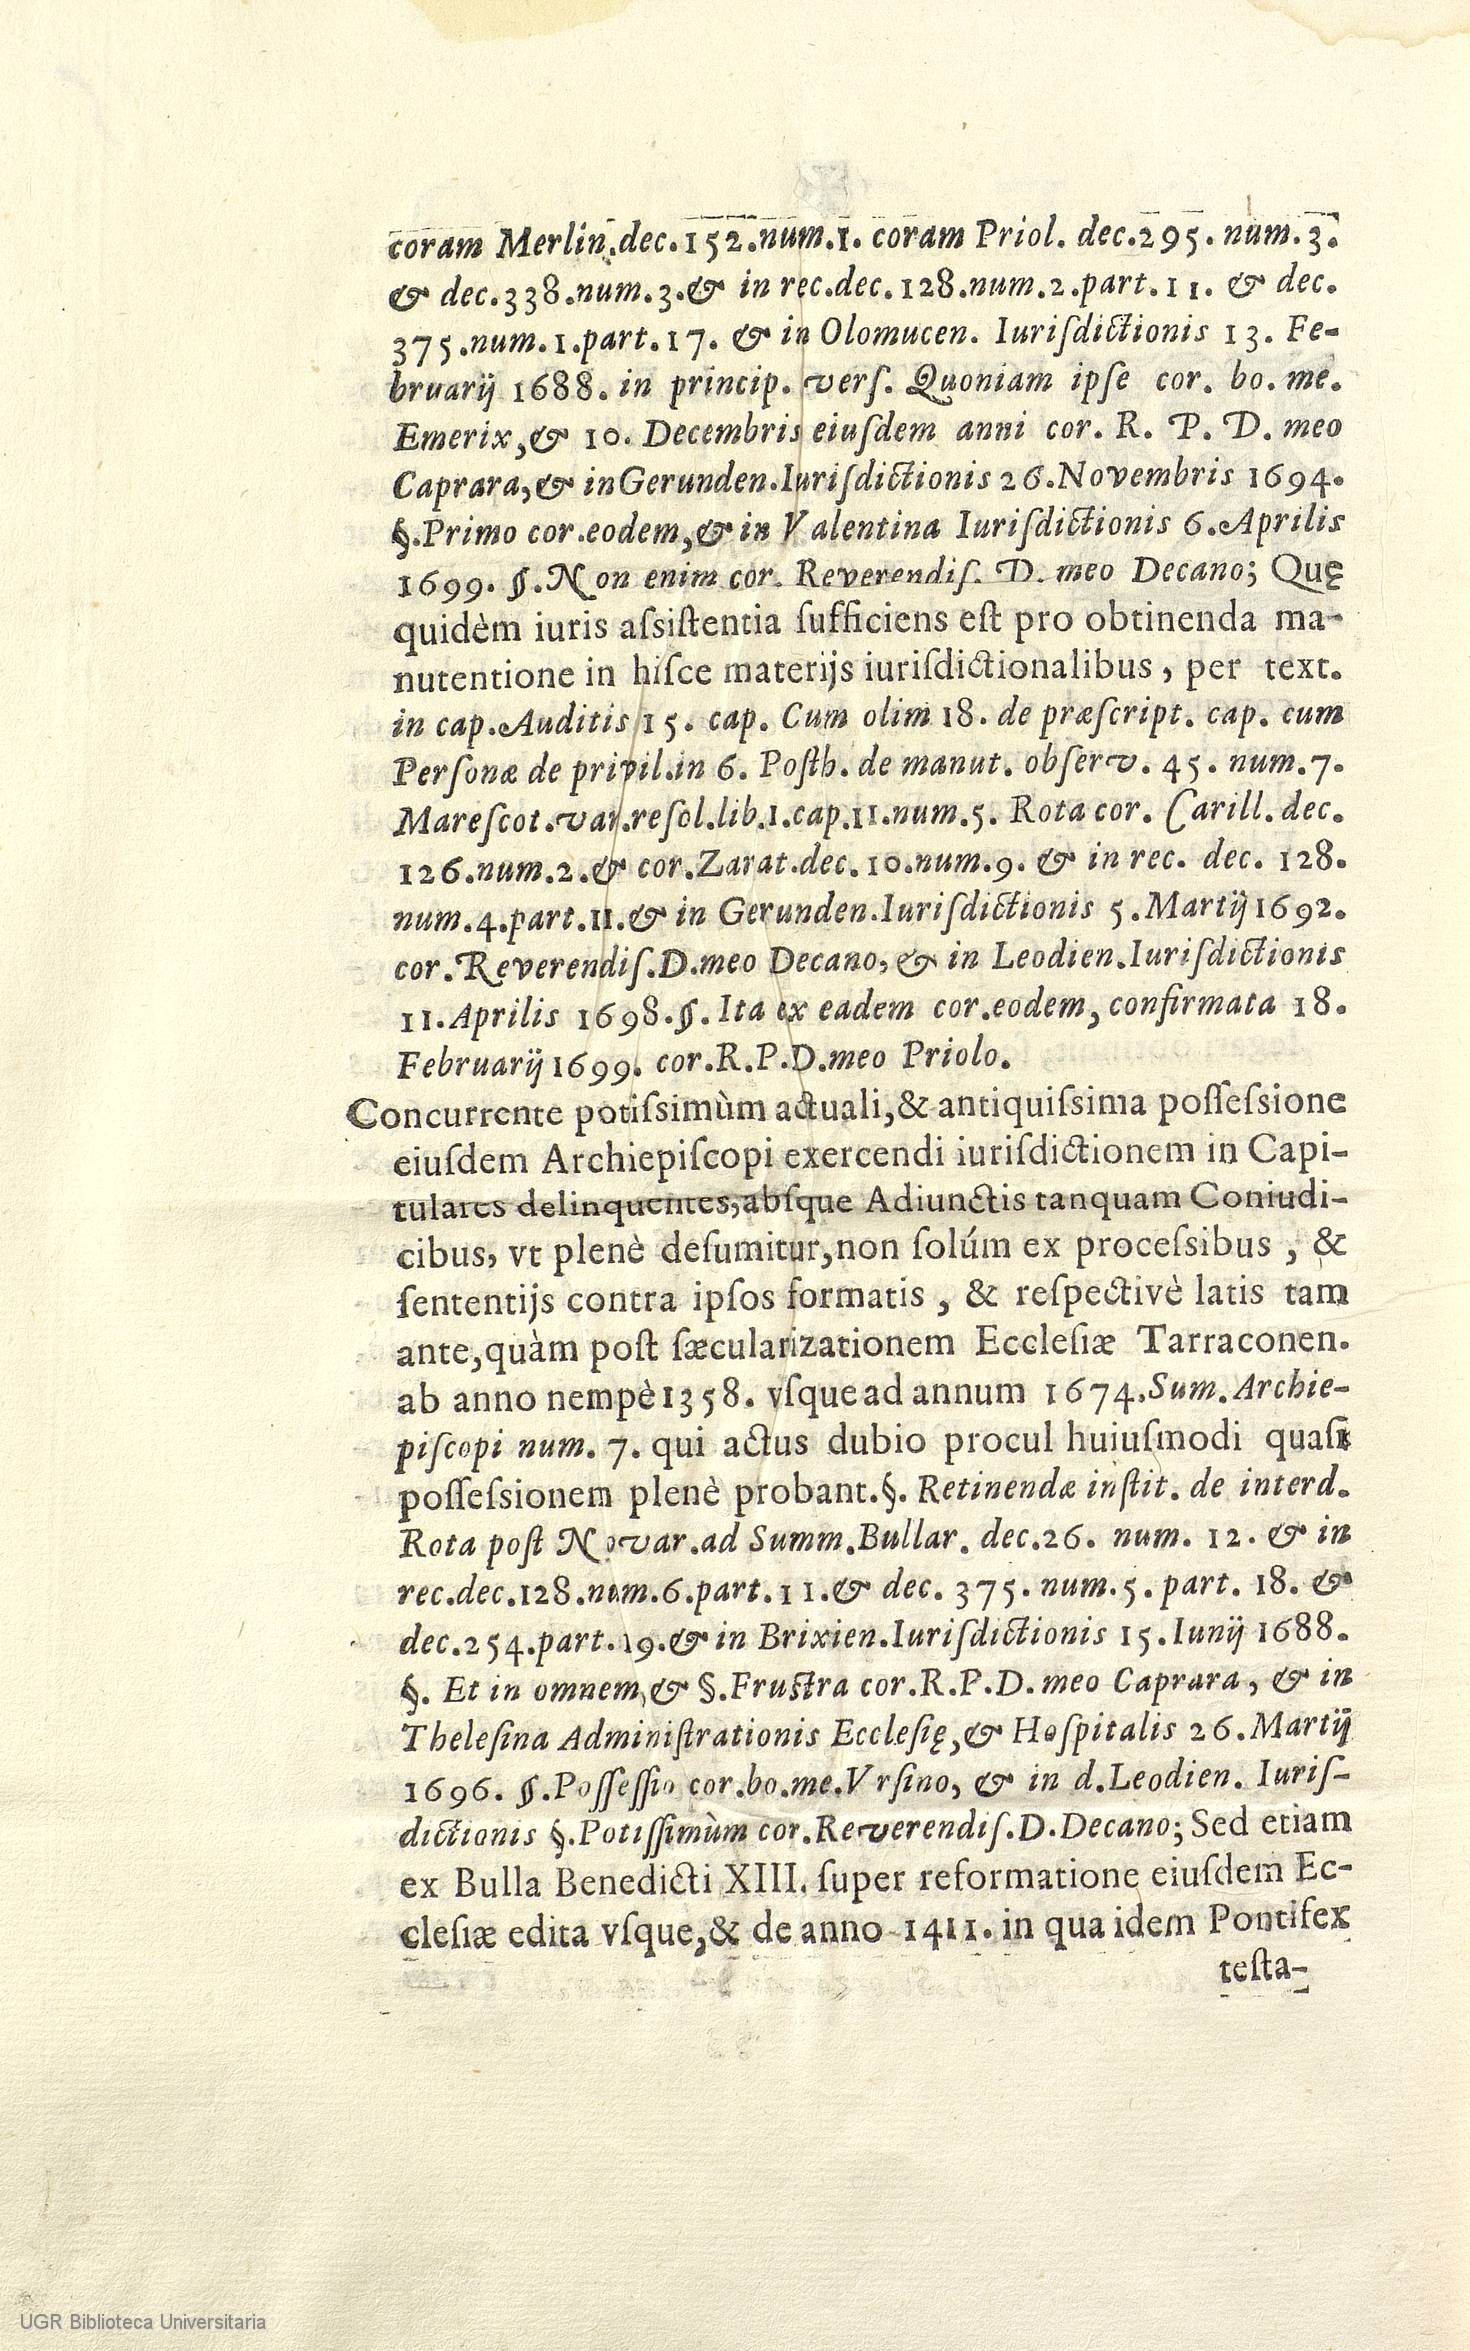 coram Merlin.dec.152.num.1. coram Priol. dec.295. num.3.
& dec.338.num.3.& in rec.dec.128.num.2.part.11. & dec.
375.num.1.part.17. & in Olomucen. Iuriſdictionis 13. Fe-
bruarij 1688. in princip. verſ. Quoniam ipſe cor. bo. me.
Emerix,& 10. Decembris eiuſdem anni cor. R. P. D. meo
Caprara,& in Gerunden.Iuriſdictionis 26.Novembris 1694.
§.Primo cor.eodem,& in Valentina Iuriſdictionis 6.Aprilis
1699. §.Non enim cor. Reverendiſ. D. meo Decano; Quę
quidèm iuris aſsiſtentia ſufficiens eſt pro obtinenda ma-
nutentione in hiſce materijs iuriſdictionalibus, per text.
in cap.Auditis 15. cap. Cum olim 18. de præſcript. cap. cum
Perſonæ de privil.in 6. Poſth. de manut. obſerv. 45. num.7.
Mareſcot.var.reſol.lib.1.cap.11.num.5. Rota cor. Carill. dec.
126.num.2.& cor.Zarat.dec.10.num.9. & in rec. dec. 128.
num.4.part.11.& in Gerunden.Iuriſdictionis 5.Martij 1692.
cor.Reverendiſ.D.meo Decano,& in Leodien.Iuriſdictionis
11.Aprilis 1698.§. Ita ex eadem cor.eodem, confirmata 18.
Februarij 1699. cor.R.P.D.meo Priolo.
Concurrente potiſsimùm actuali,& antiquiſsima poſſeſsione
eiuſdem Archiepiſcopi exercendi iuriſdictionem in Capi-
tulares delinquentes,abſque Adiunctis tanquam Coniudi-
cibus, vt plenè deſumitur,non ſolúm ex proceſsibus, &
ſententijs contra ipſos formatis, & reſpectivè latis tam
ante,quàm poſt ſæcularizationem Eccleſiæ Tarraconen.
ab anno nempè 1358. vſque ad annum 1674.Sum. Archie-
piſcopi num. 7. qui actus dubio procul huiuſmodi quaſi
poſſeſsionem plenè probant.§. Retinendæ inſtit. de interd.
Rota poſt Novar.ad Summ.Bullar. dec.26. num. 12. & in
rec.dec.128.num.6.part.11.& dec. 375. num.5. part. 18. &
dec.254.part.19.& in Brixien.Iuriſdictionis 15.Iunij 1688.
§. Et in omnem,& §.Fruſtra cor.R.P.D.meo Caprara, & in
Theleſina Adminiſtrationis Eccleſię,& Hoſpitalis 26.Martij
1696. §.Poſſeſſio cor.bo.me.Vrſino, & in d.Leodien. Iuriſ-
dictionis §.Potiſſimùm cor.Reverendiſ.D.Decano; Sed etiam
ex Bulla Benedicti XIII. ſuper reformatione eiuſdem Ec-
cleſiæ edita vſque,& de anno 1411. in qua idem Pontifex
teſta-
UGR Biblioteca Universitaria